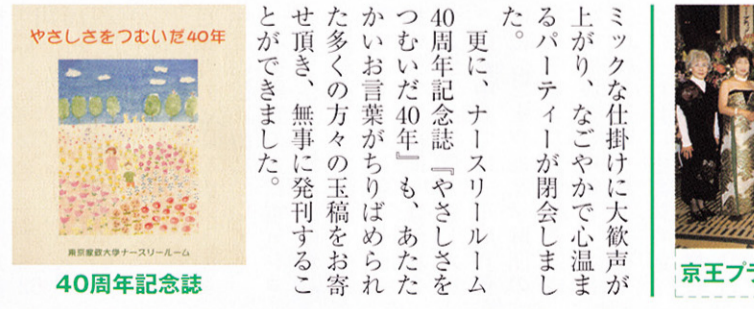 ミックな仕掛けに大歓声が
上がり、なごやかで心温ま
るパーティーが閉会しまし
た。
更に、ナースリールーム
40周年記念誌『やさしさを
つむいだ40年』も、あたた
かいお言葉がちりばめられ
た多くの方々の玉稿をお寄
せ頂き、無事に発刊するこ
とができました。
やさしさをつむいだ40年
東京家政大学ナースリールーム
40周年記念誌
京王プラ